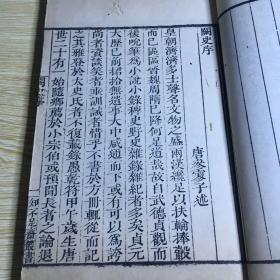 闕史序
唐參寥子述
皇朝濟濟多士聲名文物之盛兩漢纔足以扶輪捧轂
而已區區晉魏周隋已降何足道哉故自武德貞觀而
後吮筆為小說小錄稗史野史雜錄雜紀者多矣貞元
大歷已前捃拾無遺事大中咸通而下或有可以為誇
尚者資談笑者垂訓誡者惜乎不書於方冊輒從而記
之其雅登於太史氏者不復載錄愚乾符甲午歲生唐
世二十有一始隨鄉薦於小宗伯或預聞長者之論退
一 知不足齋叢書